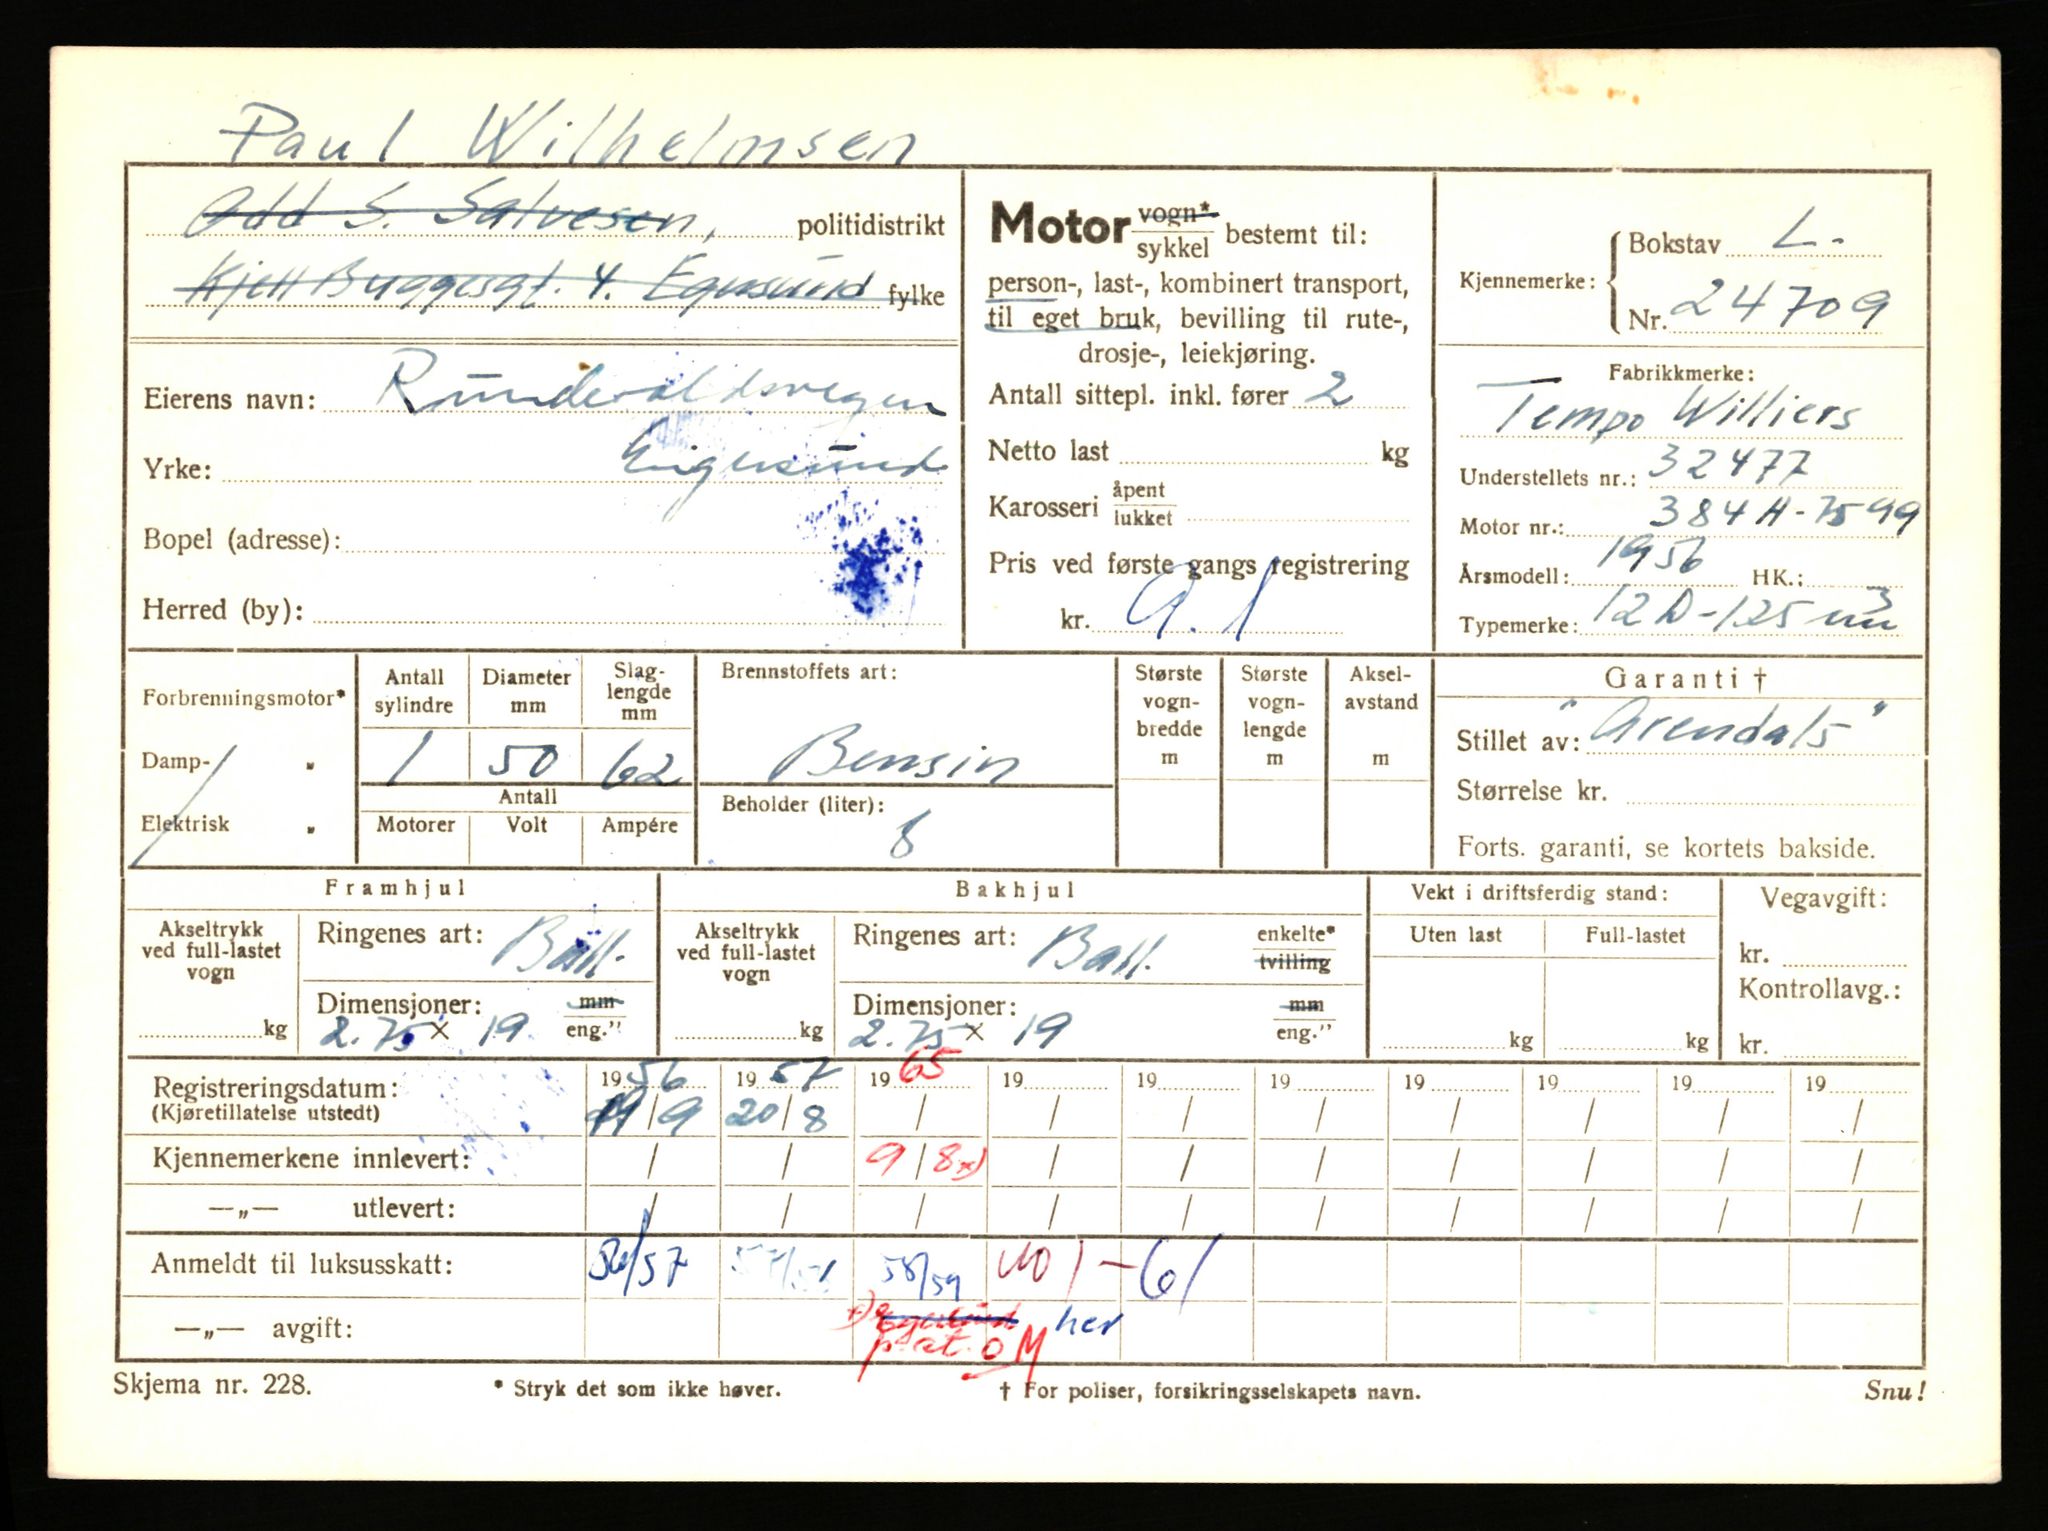 Paul Wilhelmsen
Odd S. Salvesen, politidistrikt
Kjell Buggesgt. 4. Egersund fylke
Eierens navn: Rundevoldsvegen
Yrke: Eigersund
Bopel (adresse):
Herred (by):
Motor vogn* / sykkel bestemt til:
person-, last-, kombinert transport,
til eget bruk, bevilling til rute-,
drosje-, leiekjøring.
Antall sittepl. inkl. fører 2
Netto last kg
Karosseri åpent / lukket
Pris ved første gangs registrering
kr.
Kjennemerke: Bokstav L.
Nr. 24709
Fabrikkmerke:
Tempo Williers
Understellets nr.: 32477
Motor nr.: 384 H-7599
Årsmodell: 1956 HK.:
Typemerke: 12 D-125
Forbrenningsmotor*
Damp- "
Elektrisk "
Antall sylindre 1
Diameter mm 50
Slag-lengde mm 62
Antall
Motorer Volt Ampére
Brennstoffets art:
Bensin
Beholder (liter):
8
Største vogn-bredde m
Største vogn-lengde m
Aksel-avstand m
Garanti †
Stillet av: "Arendals"
Størrelse kr.
Forts. garanti, se kortets bakside.
Framhjul
Akseltrykk ved full-lastet vogn
kg
Ringenes art: Ball.
Dimensjoner: mm / eng."
2.75 x 19
Bakhjul
Akseltrykk ved full-lastet vogn
kg
Ringenes art: Ball. enkelte* / tvilling
Dimensjoner: mm / eng."
2.75 x 19
Vekt i driftsferdig stand:
Uten last Full-lastet
kg kg
Vegavgift:
kr.
Kontrollavg.:
kr.
Registreringsdatum: 19 56 19 57 19 65 19 19 19 19 19 19 19
(Kjøretillatelse utstedt) / 9 20 / 8 / / / / / / / /
Kjennemerkene innlevert: / / 9 / 8 x) / / / / / / /
—„— utlevert: / / / / / / / / / /
Anmeldt til luksusskatt: 56/57 57/58 58/59 - 61
—„— avgift: x) Egersund her
Skjema nr. 228.
* Stryk det som ikke høver.
† For poliser, forsikringsselskapets navn.
Snu!